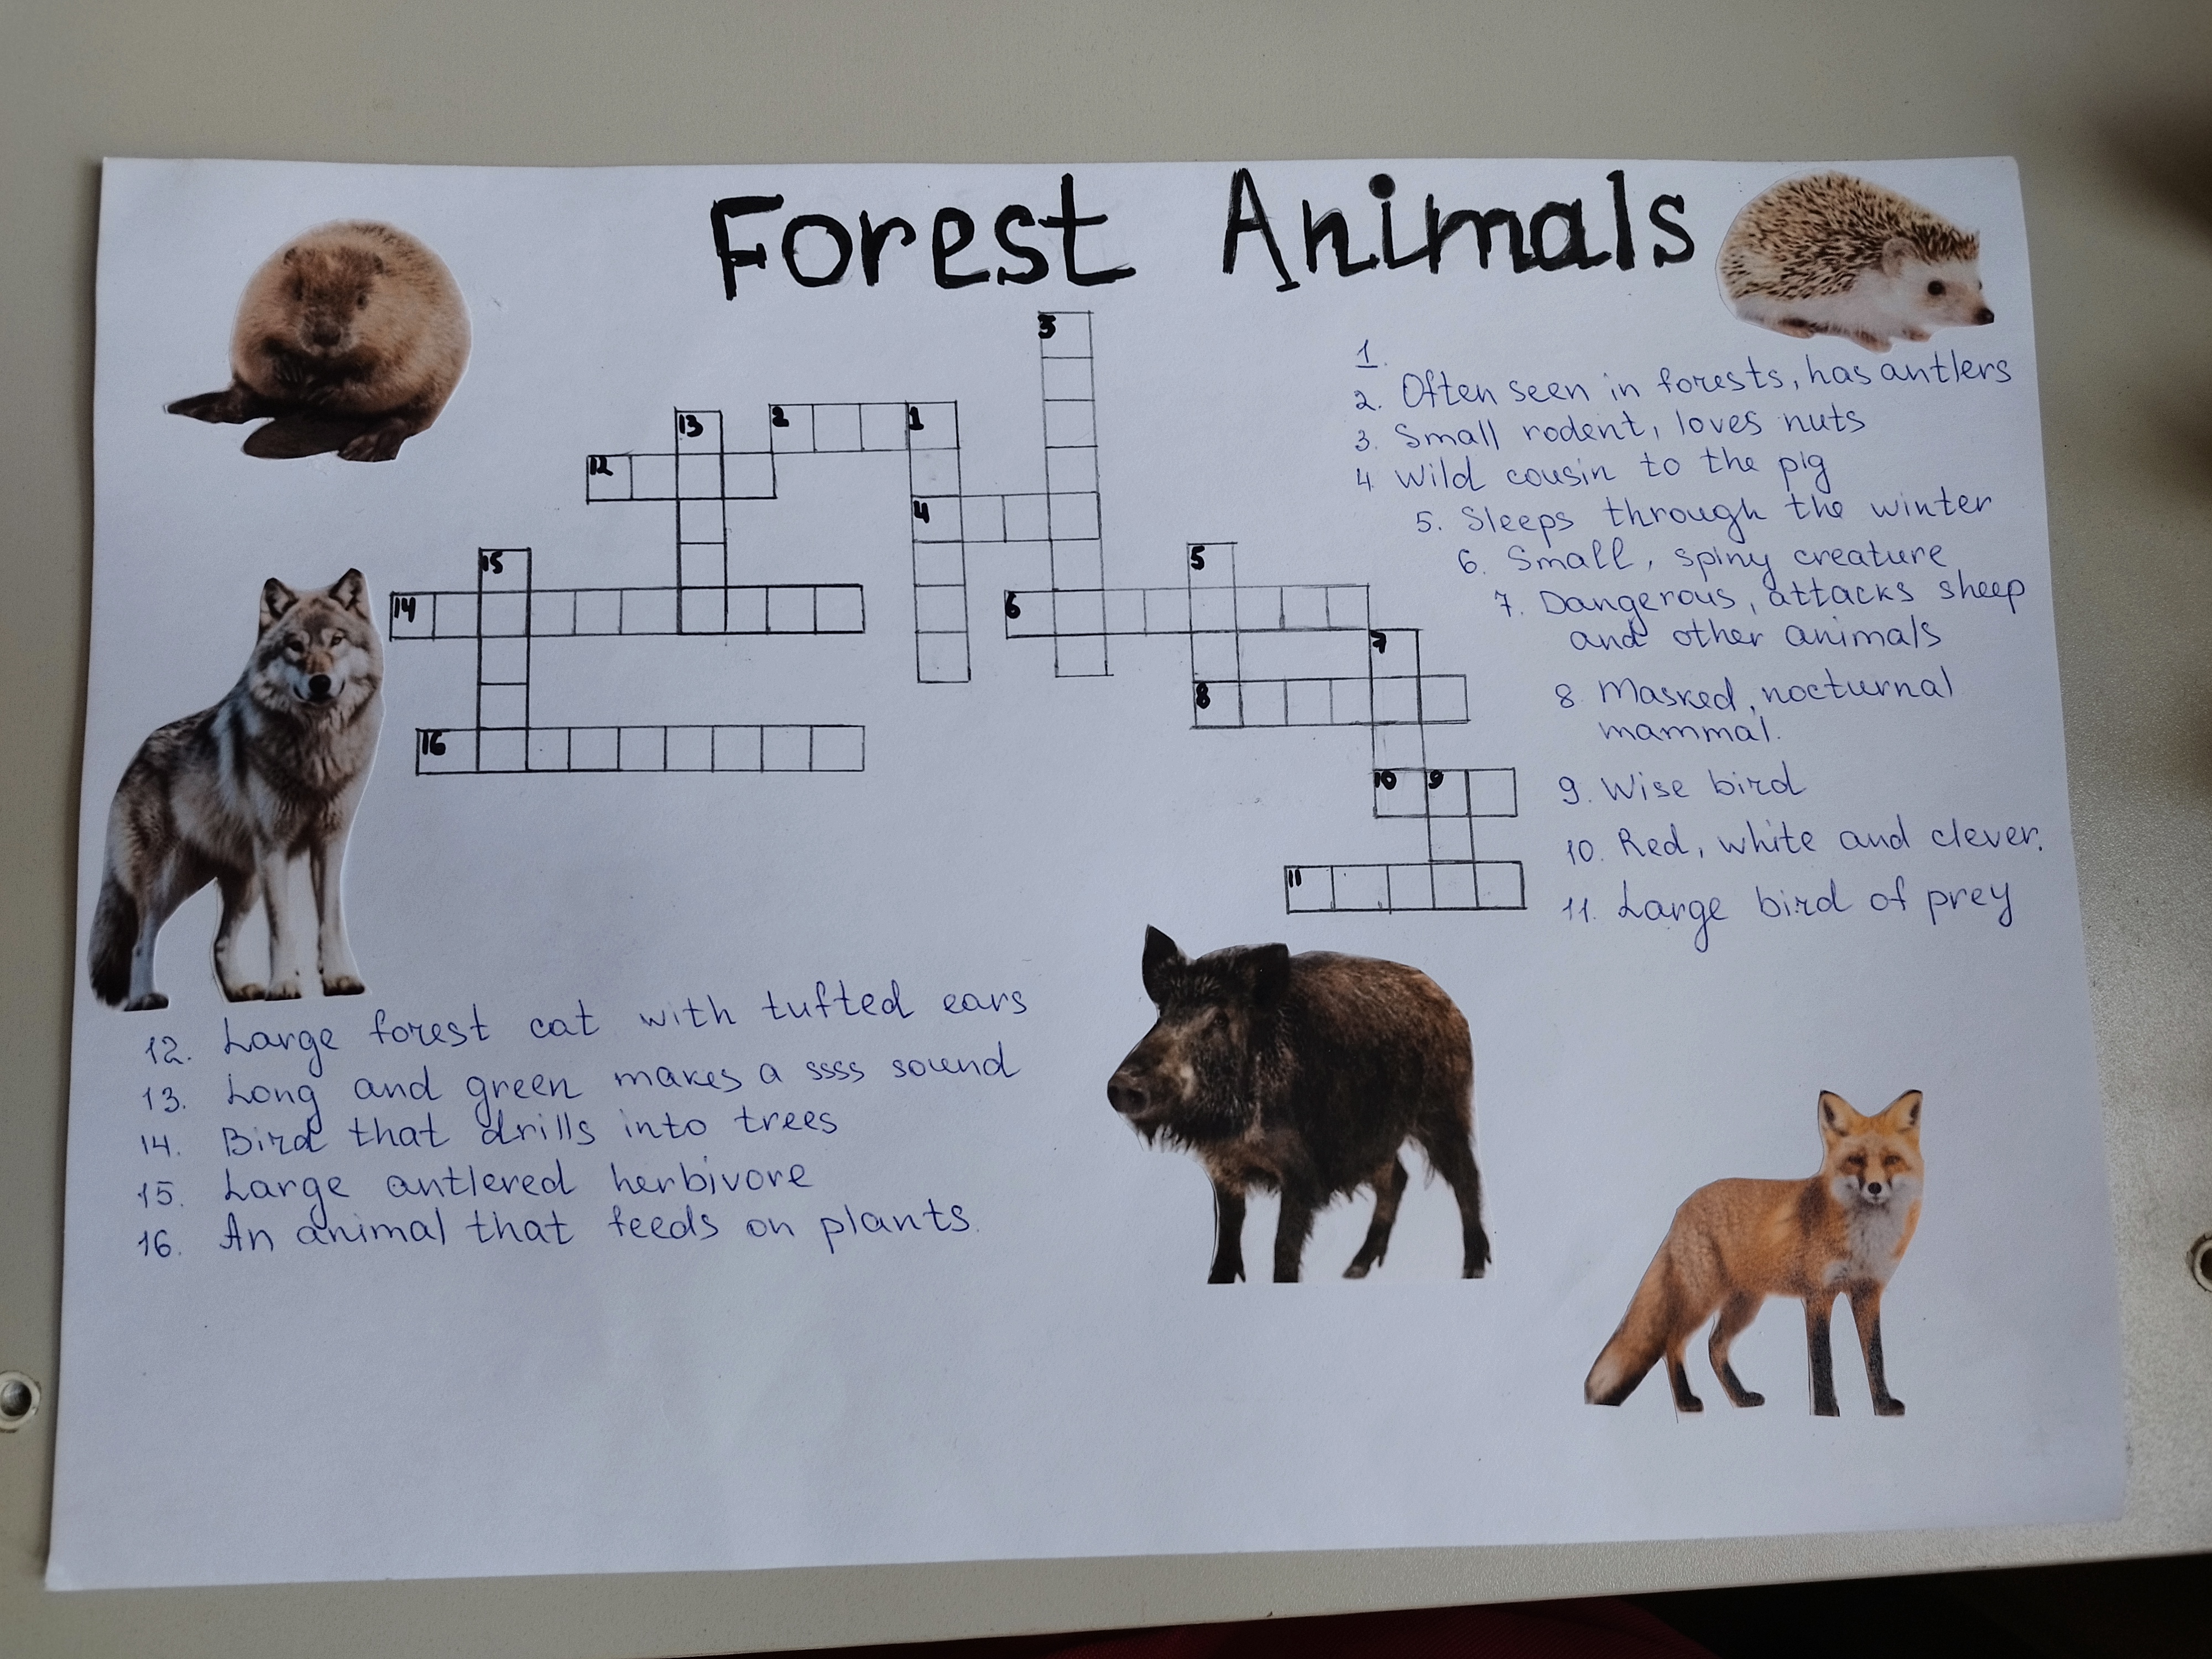 Forest Animals
3
13 2 1
12
4
15 5
14 6
7
8
16
10 9
11
1.
2. Often seen in forests, has antlers
3. Small rodent, loves nuts
4. Wild cousin to the pig
5. Sleeps through the winter
6. Small, spiny creature
7. Dangerous, attacks sheep
and other animals
8. Masked, nocturnal
mammal.
9. Wise bird
10. Red, white and clever.
11. Large bird of prey
12. Large forest cat with tufted ears
13. Long and green makes a ssss sound
14. Bird that drills into trees
15. Large antlered herbivore
16. An animal that feeds on plants.